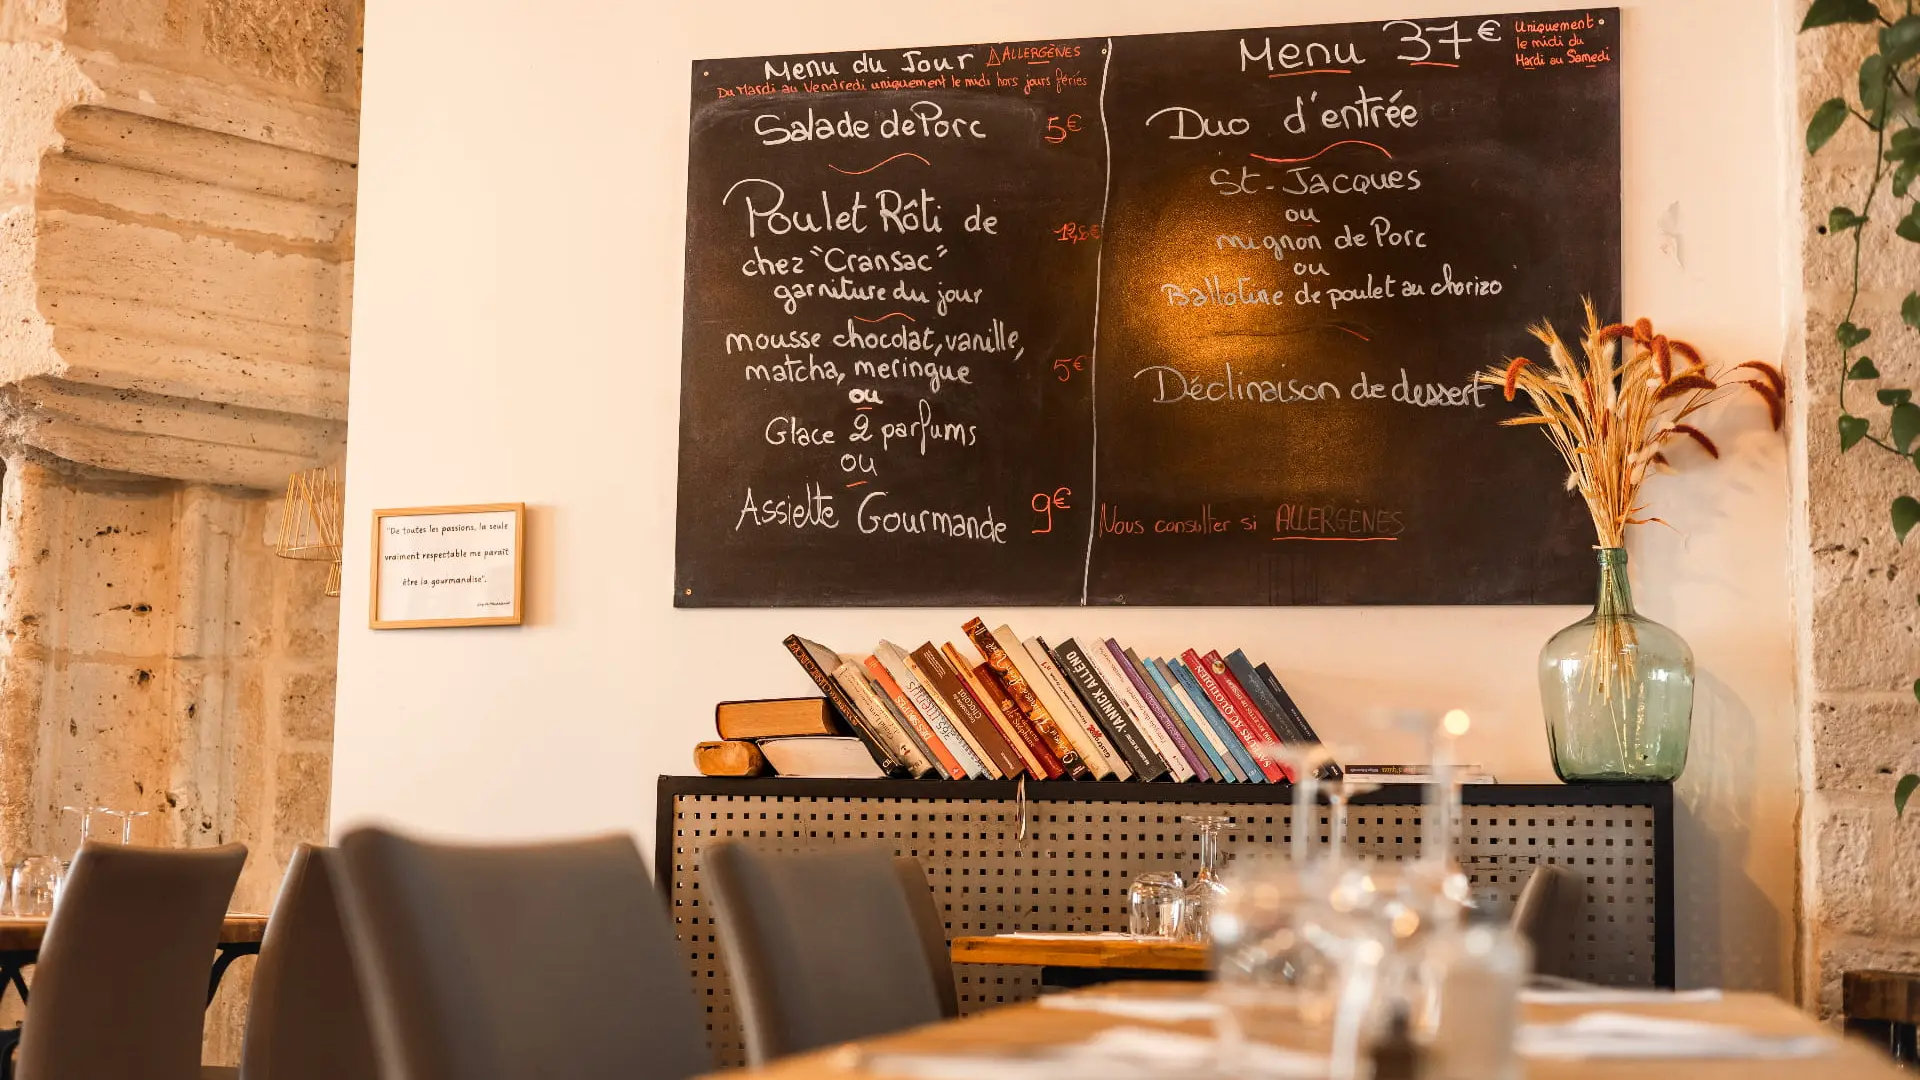 Menu du Jour ⚠ ALLERGÈNES
Du Mardi au Vendredi uniquement le midi hors jours féries
Salade de Porc 5€
Poulet Rôti de
chez "Cransac"
garniture du jour
mousse chocolat, vanille,
matcha, meringue 5€
ou
Glace 2 parfums
ou
Assiette Gourmande 9€
Menu 37€
Uniquement
le midi du
Mardi au Samedi
Duo d'entrée
St-Jacques
ou
mignon de Porc
ou
Ballotine de poulet au chorizo
Déclinaison de dessert
Nous consulter si ALLERGÈNES
"De toutes les passions, la seule
vraiment respectable me paraît
être la gourmandise".
YANNICK ALLÉNO
SAVEURS AU QUOTIDIEN